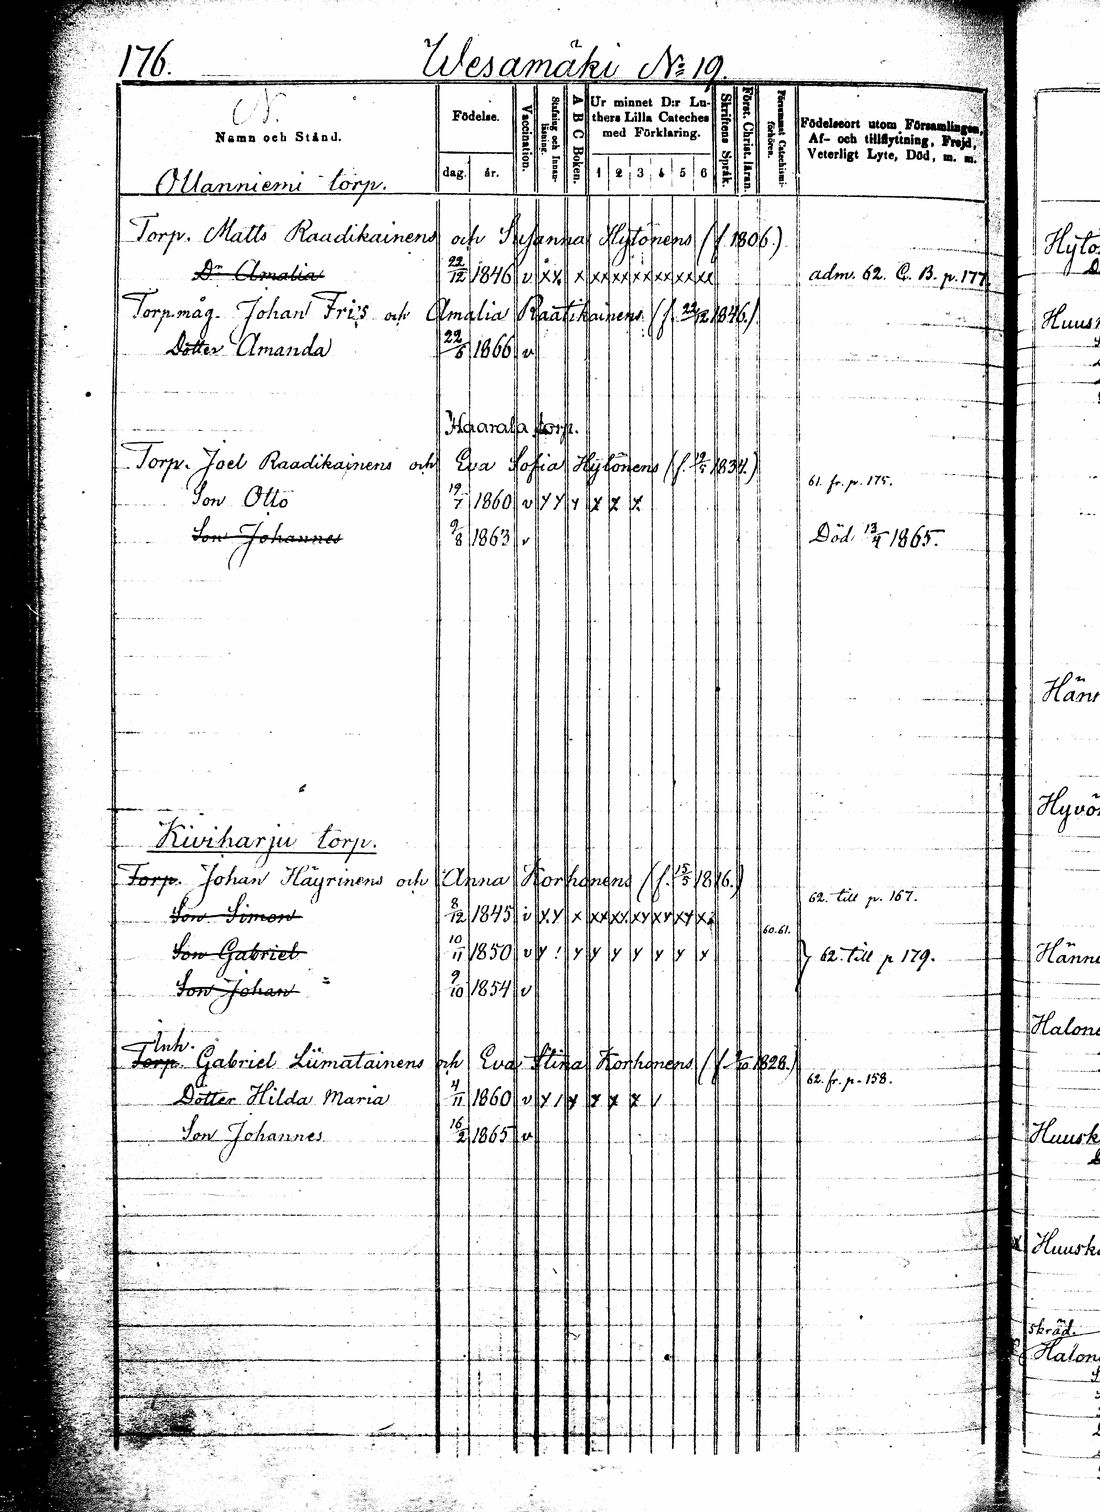 176. Wesamäki № 19.
N.
Namn och Stånd.
Födelse.
dag. år.
Vaccination.
Stafning och Innan-
läsning.
A B C Boken.
Ur minnet D:r Lu-
thers Lilla Cateches
med Förklaring.
1 2 3 4 5 6
Skriftens Språk.
Först. Christ. läran.
Försummat Catechismi-
förhören.
Födelseort utom Församlingen,
Af- och tillflyttning, Frejd,
Veterligt Lyte, Död, m. m.
Ollanniemi torp.
Torp. Matts Raadikainens och Susanna Hytönens (f. 1806.)
Dr Amalia 22/12 1846 v x x x x x x x x x x x x x x adm. 62. C. B. p. 177
Torp.måg. Johan Friis och Amalia Raatikainens (f. 22/12 1846.)
Dotter Amanda 22/5 1866 v
Haarala torp.
Torp. Joel Raadikainens och Eva Sofia Hytönens (f. 19/5 1834.)
61. fr. p. 175.
Son Otto 19/7 1860 v y y y x x x
Son Johannes 9/8 1863 v Död 13/4 1865.
Kiviharju torp.
Torp. Johan Häyrinens och Anna Korhonens (f. 15/5 1816.)
62. till p. 167.
Son Simon 8/12 1845 v y y x xx xx xy xy xy xx
60. 61.
Son Gabriel 10/11 1850 v y ! y y y y y y y } 62. till p 179.
Son Johan 9/10 1854 v
Inh.
Torp. Gabriel Liimatainens och Eva Stina Korhonens (f. 1828.)
62. fr. p. 158.
Dotter Hilda Maria 4/11 1860 v y / y x x x /
Son Johannes 16/2 1865 v
Huusk
Hänn
Hyvö
Hänn
Halon
Huusk
Huusk
skräd.
Halon